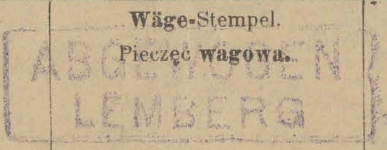 Wäge-Stempel.
Pieczęć wagowa.
ABGEWOGEN
LEMBERG